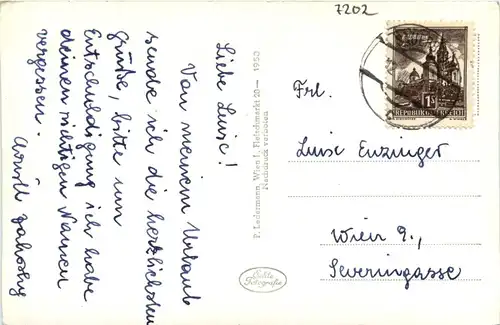 7202
Liebe Luise!
Von meinem Urlaub
sende ich die herzlichsten
Grüße, bitte um
Entschuldigung ich habe
deinen richtigen Namen
vergessen.
P. Ledermann, Wien I, Fleischmarkt 20 — 1950
Nachdruck verboten
Echte
Fotografie
1S
REPUBLIK ÖSTERREICH
Frl.
Luise Enzinger
Wien 9.,
Severingasse